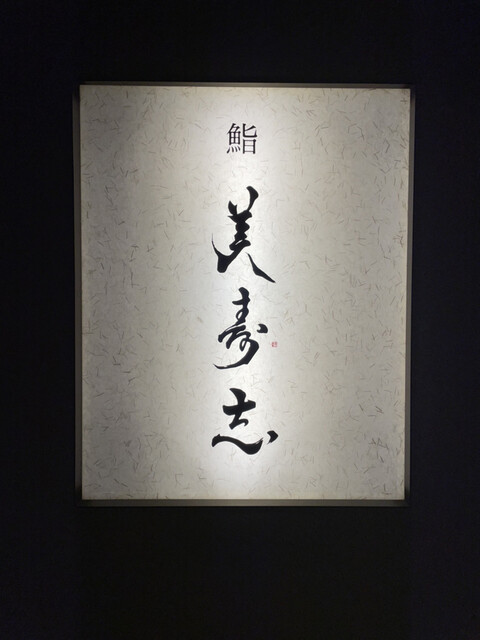 鮨
美寿志